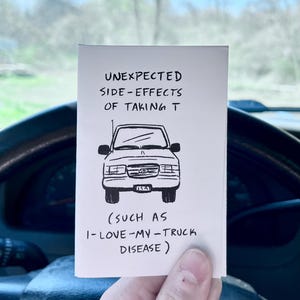 UNEXPECTED
SIDE-EFFECTS
OF TAKING T
(SUCH AS
I-LOVE-MY-TRUCK
DISEASE)